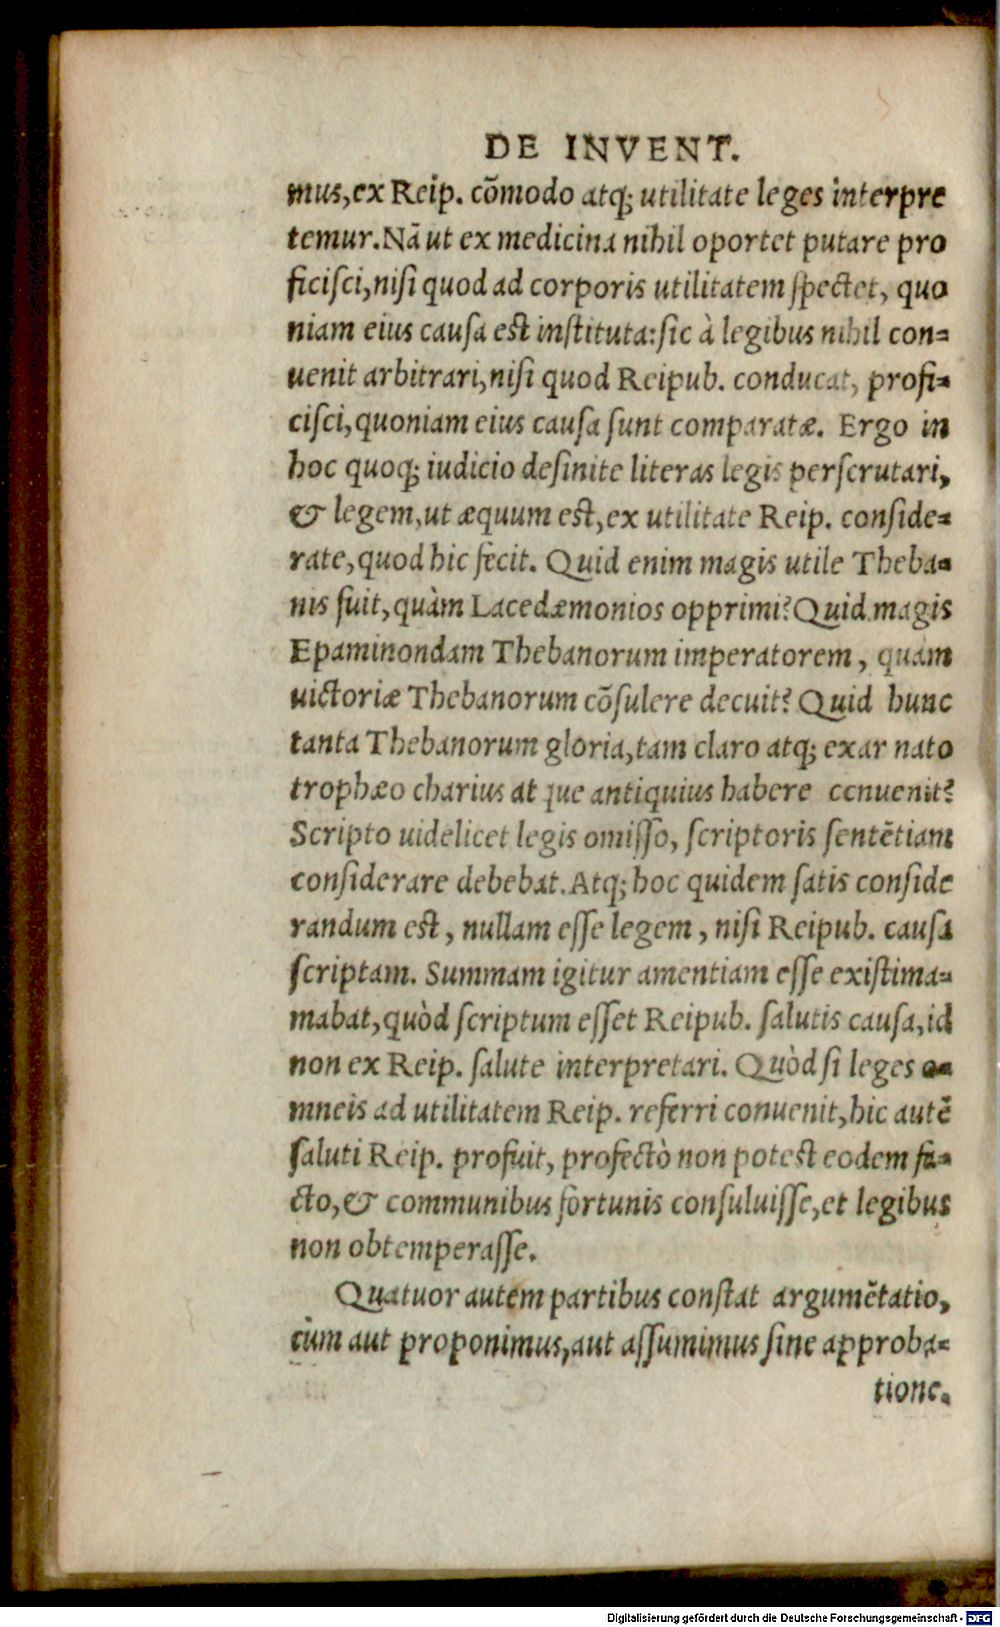 DE INVENT.
mus, ex Reip. cõmodo atq; utilitate leges interpre
temur. Nã ut ex medicina nihil oportet putare pro
ficiſci, niſi quod ad corporis utilitatem ſpectet, quo
niam eius cauſa eſt inſtituta: ſic à legibus nihil con-
uenit arbitrari, niſi quod Reipub. conducat, profi-
ciſci, quoniam eius cauſa ſunt comparatæ. Ergo in
hoc quoq; iudicio deſinite literas legis perſcrutari,
& legem, ut æquum eſt, ex utilitate Reip. conſide-
rate, quod hic fecit. Quid enim magis utile Theba-
nis fuit, quàm Lacedæmonios opprimi? Quid magis
Epaminondam Thebanorum imperatorem, quam
uictoriæ Thebanorum cõſulere decuit? Quid hunc
tanta Thebanorum gloria, tam claro atq; exar nato
trophæo charius at que antiquius habere cenuenit?
Scripto uidelicet legis omiſſo, ſcriptoris ſentẽtiam
conſiderare debebat. Atq; hoc quidem ſatis conſide
randum eſt, nullam eſſe legem, niſi Reipub. cauſa
ſcriptam. Summam igitur amentiam eſſe exiſtima-
mabat, quòd ſcriptum eſſet Reipub. ſalutis cauſa, id
non ex Reip. ſalute interpretari. Quòd ſi leges o-
mneis ad utilitatem Reip. referri conuenit, hic autẽ
ſaluti Reip. profuit, profectò non poteſt eodem fa-
cto, & communibus fortunis conſuluiſſe, et legibus
non obtemperaſſe.
Quatuor autem partibus conſtat argumẽtatio,
cùm aut proponimus, aut aſſumimus ſine approba-
tione.
Digitalisierung gefördert durch die Deutsche Forschungsgemeinschaft - DFG